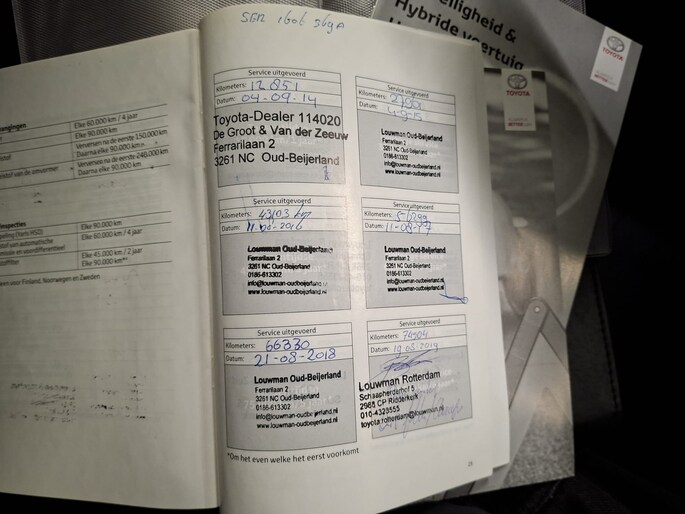 SGR 1606 369A
eiligheid &
Hybride voertuig
TOYOTA
TOYOTA
Elke 60.000 km / 4 jaar
Elke 90.000 km
Verversen na de eerste 150.000 km
Daarna elke 90.000 km
Verversen na de eerste 240.000 km
Daarna elke 90.000 km
Elke 90.000 km
Elke 60.000 km / 4 jaar
Elke 45.000 km / 2 jaar
Elke 90.000 km*
voor Finland, Noorwegen en Zweden
Service uitgevoerd
Kilometers: 12851
Datum: 04-09-14
Toyota-Dealer 114020
De Groot & Van der Zeeuw
Ferrarilaan 2
3261 NC Oud-Beijerland
Service uitgevoerd
Kilometers:
Datum: 4-9-15
Louwman Oud-Beijerland
Ferrarilaan 2
3261 NC Oud-Beijerland
0186-613302
info@louwman-oudbeijerland.nl
www.louwman-oudbeijerland.nl
Service uitgevoerd
Kilometers: 43103 km
Datum:
Louwman Oud-Beijerland
Ferrarilaan 2
3261 NC Oud-Beijerland
0186-613302
info@louwman-oudbeijerland.nl
www.louwman-oudbeijerland.nl
Service uitgevoerd
Kilometers: 56299
Datum: 11-08-17
Louwman Oud-Beijerland
Ferrarilaan 2
3261 NC Oud-Beijerland
0186-613302
info@louwman-oudbeijerland.nl
www.louwman-oudbeijerland.nl
Service uitgevoerd
Kilometers: 66330
Datum: 21-08-2018
Louwman Oud-Beijerland
Ferrarilaan 2
3261 NC Oud-Beijerland
0186-613302
info@louwman-oudbeijerland.nl
www.louwman-oudbeijerland.nl
Service uitgevoerd
Kilometers: 74904
Datum: 19-08-2019
Louwman Rotterdam
Schaapherderhof 5
2985 CP Ridderkerk
010-4323555
toyota.rotterdam@louwman.nl
*Om het even welke het eerst voorkomt